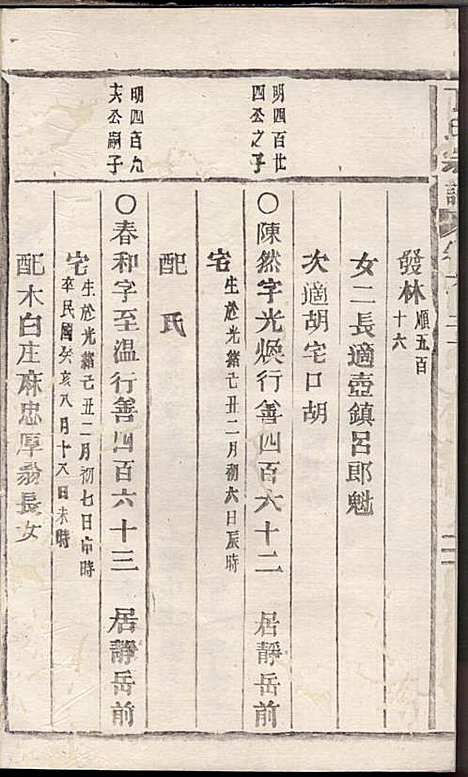 發林順五百十六
女二長適壺鎮呂郎魁
次適胡宅口胡
明四百廿四公之子
○陳然字光煥行善四百六十二 居靜岳前
宅生於光緒己丑二月初六日辰時
配 氏
明四百九六公嗣子
○春和字至溫行善四百六十三 居靜岳前
宅生於光緒己丑二月初七日申時
卒民國癸亥八月十八日未時
配木白庄麻忠厚翁長女